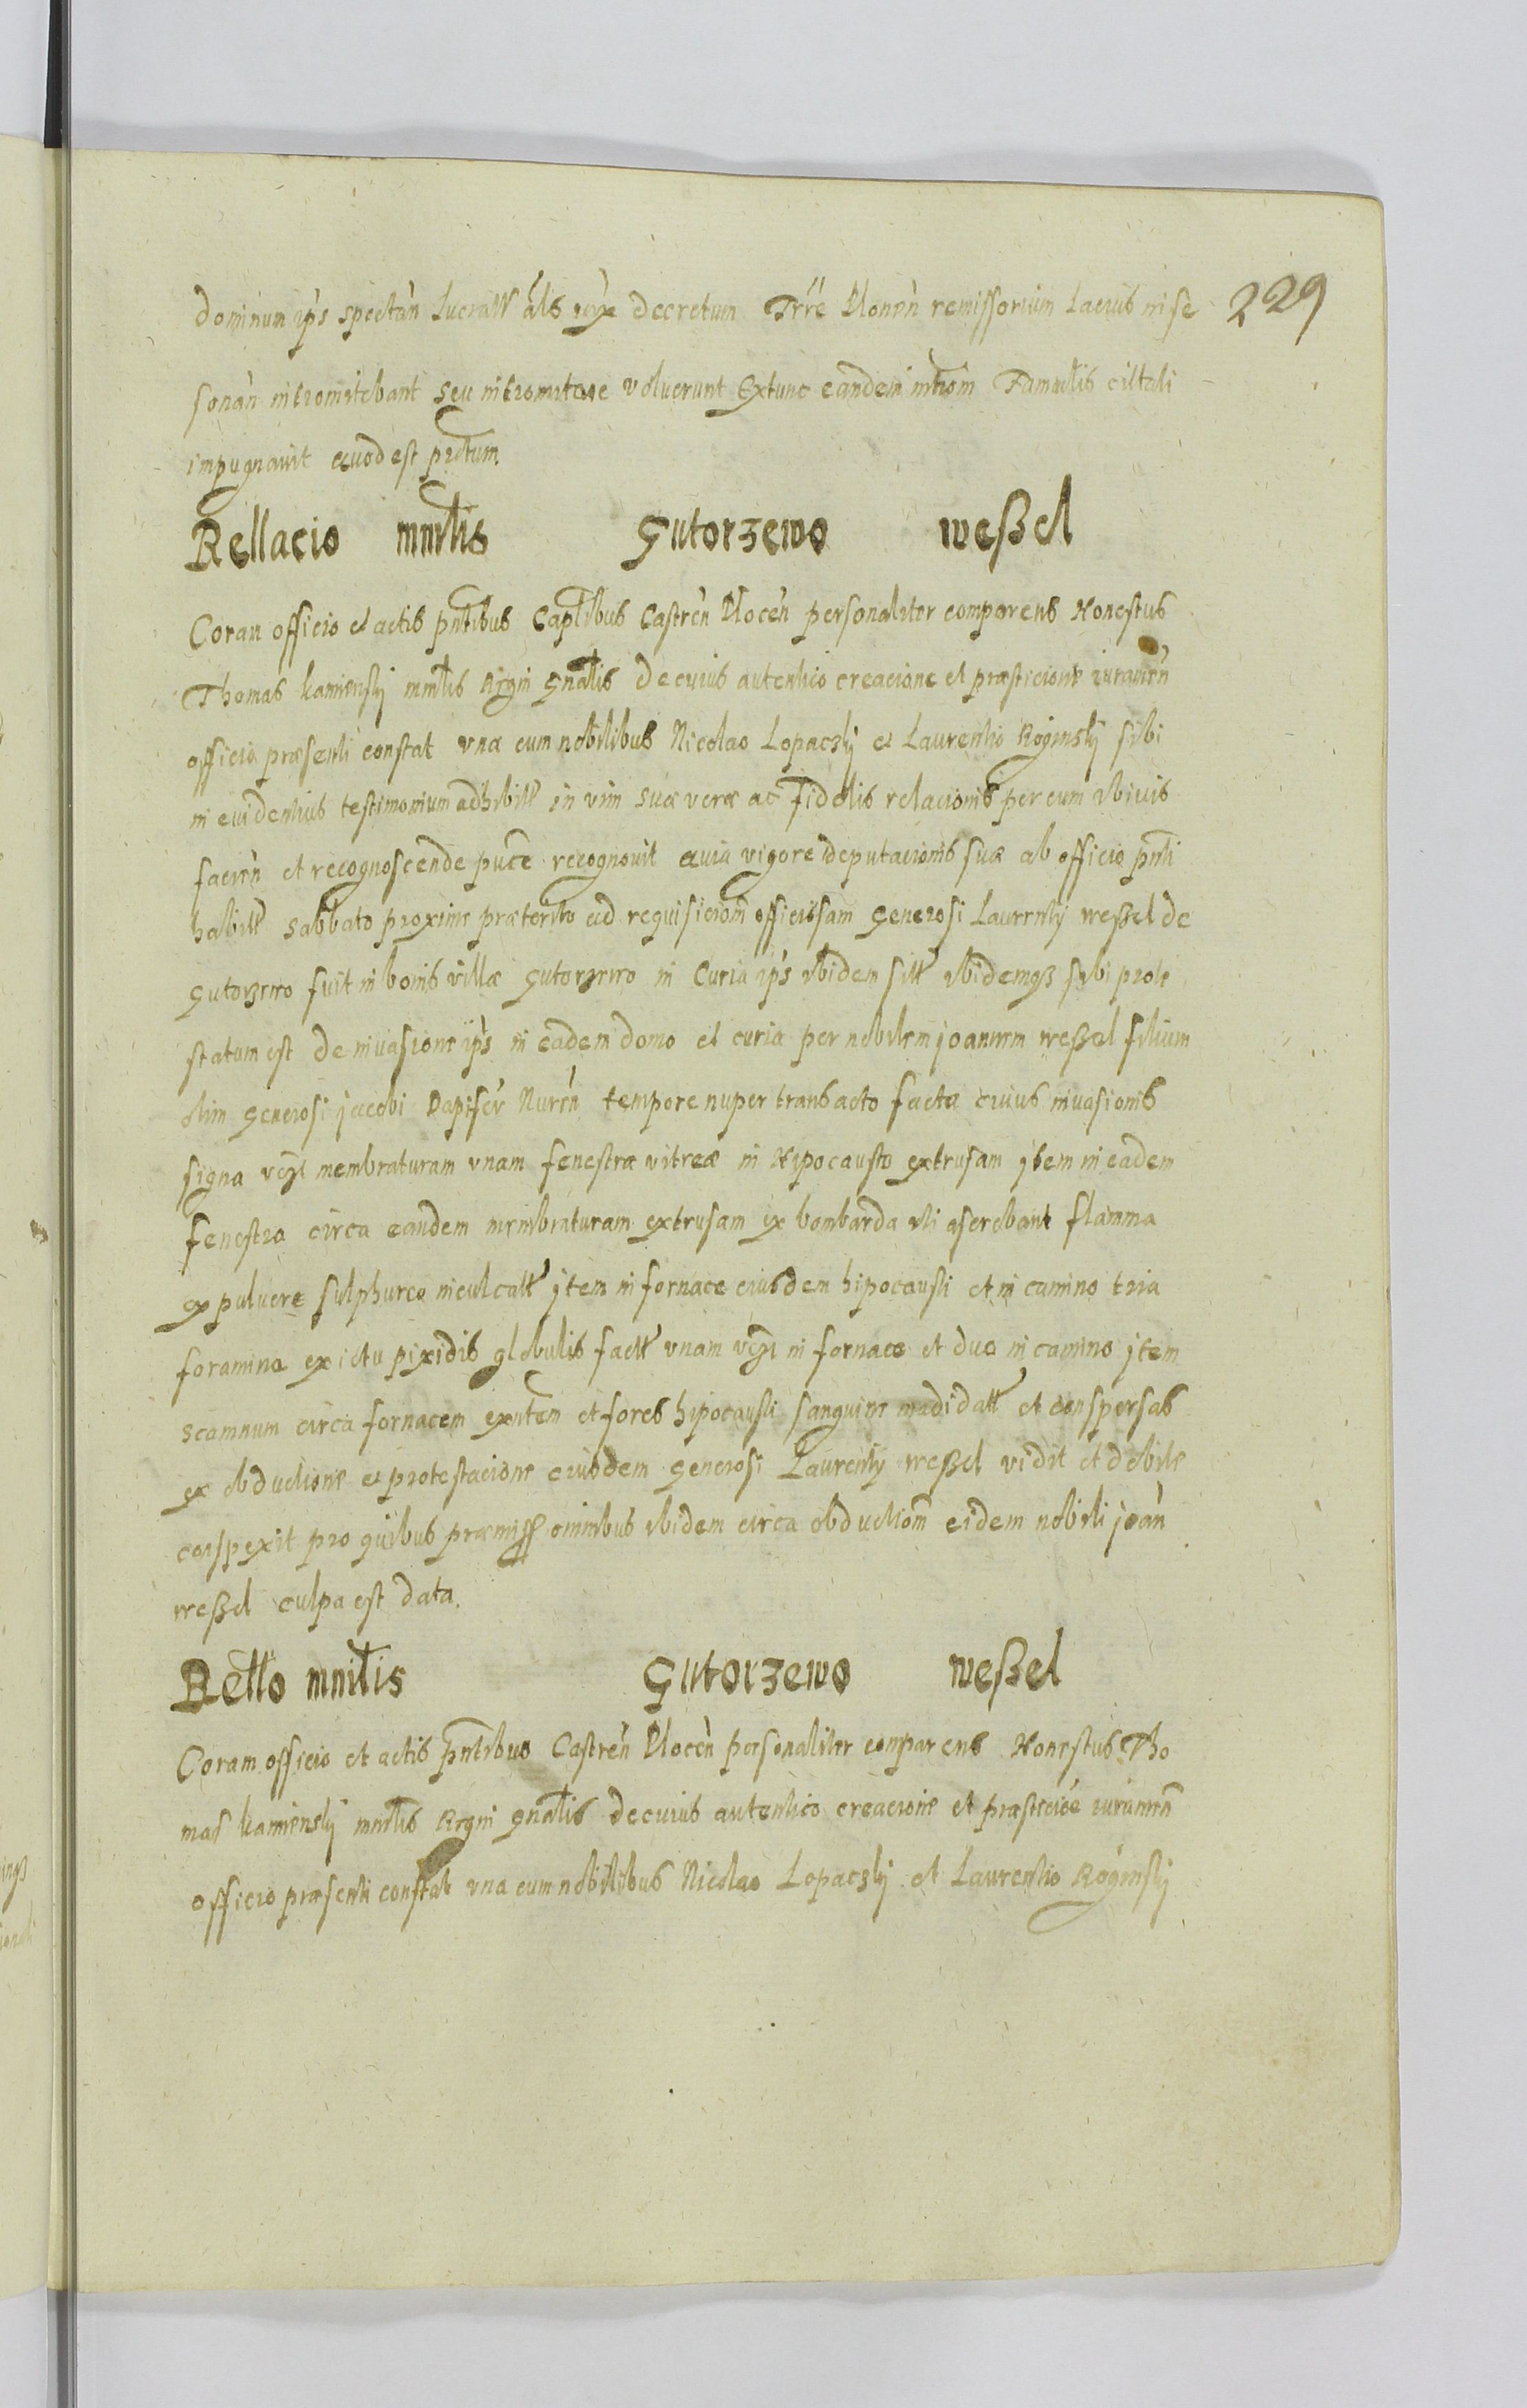 229
dominum ips spectan Lucratt als decretum Trre Plonen remissorium Lacius in se
sonan intromitebant seu intromitere voluerunt Extunc eandem introm Famulis cittali
impugnavit quod est prntum.
Rellacio mnrlis Gutorzewo weßel
Coram officio et actis pntibus Captlibus Castren Plocen personaliter comparens Honestus
Thomas kamienskj mnrlis Regni Gnalis de cuius autentico creacione et præsticione iuramen
officio præsenti constat vna cum nobilibus Nicolao Lopaczkj et Laurentio Roginskj sibi
in evidentius testimonium adhibitt in vim suæ veræ ac fidelis relacionis per eum ibivis
facien et recognoscende puce recognovit quia vigore deputacionis suæ ab officio pnti
habitt sabbato proxime præterito ad requisiciom officiosam Generosi Laurentij weßel de
Gutorzewo fuit in bonis villæ Gutorzewo in Curia ips ibidem sitt ibidemqz sibi prote
statum est de invasione ips in eadem domo et curia per nobilem joannem weßel filium
olim Generosi jacobi Dapifer Nuren tempore nuper transacto facta cuius invasionis
signa vczt membraturam vnam fenestræ vitreæ in Hipocausto extrusam jtem in eadem
fenestra circa eandem membraturam extrusam ex bombarda uti asserebant flamma
ex pulvere sulphureo inculcatt jtem in fornace eiusdem hipocausti et in camino tria
foramina ex ictu pixidis globulis factt vnam vczt in fornace et duo in camino jtem
scamnum circa fornacem exnten et fores hipocausti sanguine madidatt et conspersas
ex obductione et protestacione eiusdem Generosi Laurentij weßel vidit et debite
conspexit pro quibus præmiss omnibus ibidem circa obductiom eidem nobili joan
weßel culpa est data.
Rello mnrlis Gutorzewo weßel
Coram officio et actis pntibus Castren Plocen personaliter comparens Honestus Tho
mas kamienskj mnrlis Regni Gnalis de cuius autentico creacione et præsticioe iuramen
officio præsenti constat vna cum nobilibus Nicolao Lopaczkj et Laurentio Roginskj